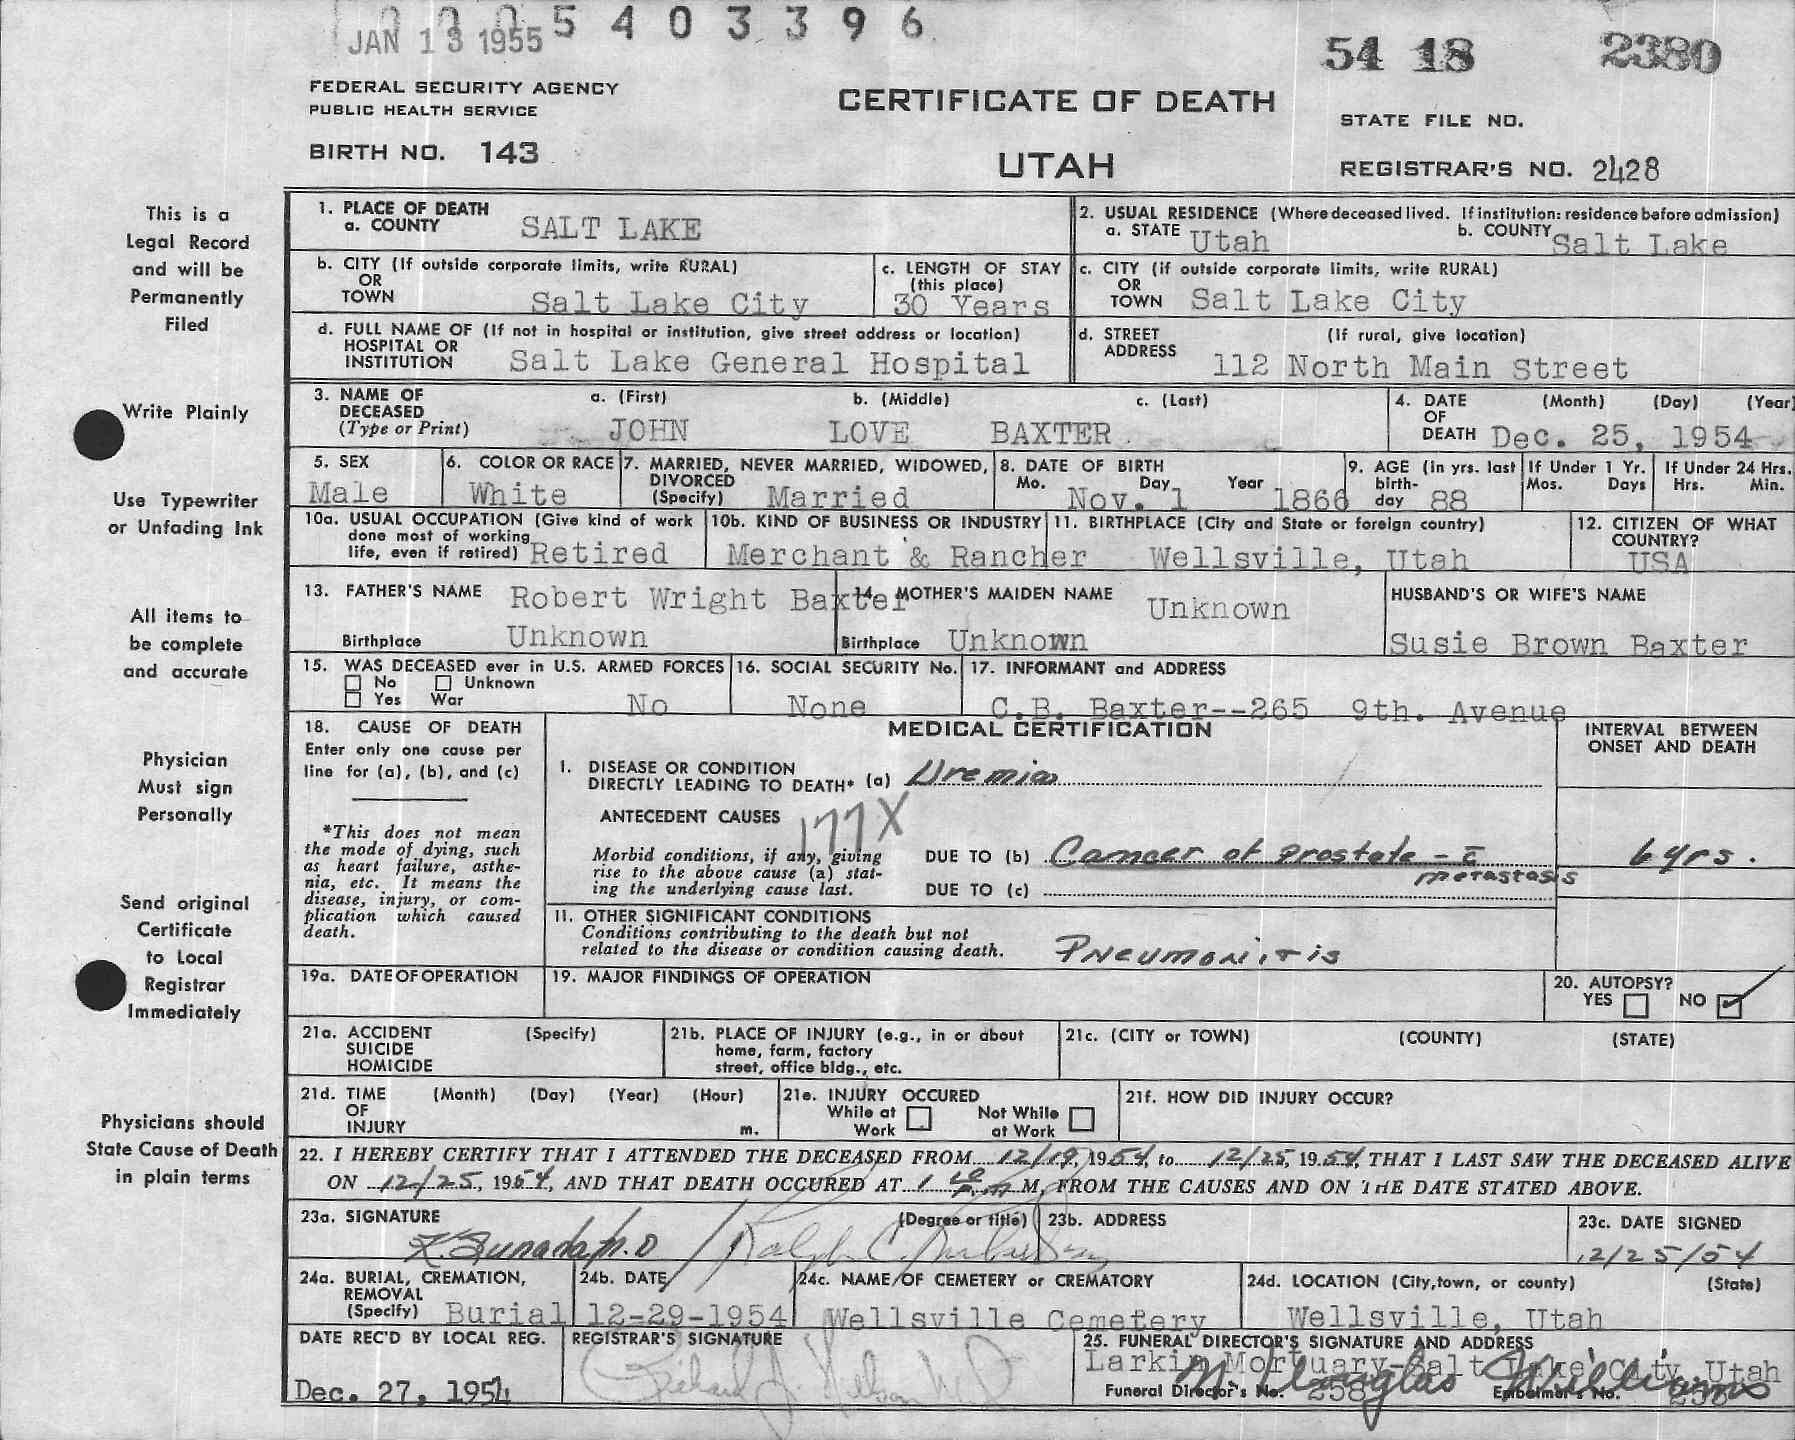 0005403396
JAN 13 1955
54 18 2380
FEDERAL SECURITY AGENCY
PUBLIC HEALTH SERVICE
CERTIFICATE OF DEATH
STATE FILE NO.
BIRTH NO. 143
UTAH
REGISTRAR'S NO. 2428
This is a
Legal Record
and will be
Permanently
Filed
Write Plainly
Use Typewriter
or Unfading Ink
All items to
be complete
and accurate
Physician
Must sign
Personally
Send original
Certificate
to Local
Registrar
Immediately
Physicians should
State Cause of Death
in plain terms
1. PLACE OF DEATH
a. COUNTY SALT LAKE
2. USUAL RESIDENCE (Where deceased lived. If institution: residence before admission)
a. STATE Utah b. COUNTY Salt Lake
b. CITY (If outside corporate limits, write RURAL)
OR
TOWN Salt Lake City
c. LENGTH OF STAY
(this place)
30 Years
c. CITY (if outside corporate limits, write RURAL)
OR
TOWN Salt Lake City
d. FULL NAME OF (If not in hospital or institution, give street address or location)
HOSPITAL OR
INSTITUTION Salt Lake General Hospital
d. STREET (If rural, give location)
ADDRESS 112 North Main Street
3. NAME OF a. (First) b. (Middle) c. (Last)
DECEASED
(Type or Print) JOHN LOVE BAXTER
4. DATE (Month) (Day) (Year)
OF
DEATH Dec. 25, 1954
5. SEX
Male
6. COLOR OR RACE
White
7. MARRIED, NEVER MARRIED, WIDOWED,
DIVORCED
(Specify) Married
8. DATE OF BIRTH
Mo. Day Year
Nov. 1 1866
9. AGE (in yrs. last
birth-
day 88
If Under 1 Yr.
Mos. Days
If Under 24 Hrs.
Hrs. Min.
10a. USUAL OCCUPATION (Give kind of work
done most of working
life, even if retired) Retired
10b. KIND OF BUSINESS OR INDUSTRY
Merchant & Rancher
11. BIRTHPLACE (City and State or foreign country)
Wellsville, Utah
12. CITIZEN OF WHAT
COUNTRY?
USA
13. FATHER'S NAME Robert Wright Baxter
Birthplace Unknown
14. MOTHER'S MAIDEN NAME Unknown
Birthplace Unknown
HUSBAND'S OR WIFE'S NAME
Susie Brown Baxter
15. WAS DECEASED ever in U.S. ARMED FORCES
No Unknown
Yes War No
16. SOCIAL SECURITY No.
None
17. INFORMANT and ADDRESS
C.B. Baxter--265 9th. Avenue
18. CAUSE OF DEATH
Enter only one cause per
line for (a), (b), and (c)
*This does not mean
the mode of dying, such
as heart failure, asthe-
nia, etc. It means the
disease, injury, or com-
plication which caused
death.
MEDICAL CERTIFICATION
INTERVAL BETWEEN
ONSET AND DEATH
I. DISEASE OR CONDITION
DIRECTLY LEADING TO DEATH* (a) Uremia
ANTECEDENT CAUSES
177X
Morbid conditions, if any, giving
rise to the above cause (a) stat-
ing the underlying cause last.
DUE TO (b) Cancer of prostate - c̄ 6 yrs.
metastasis
DUE TO (c)
II. OTHER SIGNIFICANT CONDITIONS
Conditions contributing to the death but not
related to the disease or condition causing death. Pneumonitis
19a. DATE OF OPERATION
19. MAJOR FINDINGS OF OPERATION
20. AUTOPSY?
YES NO
21a. ACCIDENT (Specify)
SUICIDE
HOMICIDE
21b. PLACE OF INJURY (e.g., in or about
home, farm, factory
street, office bldg., etc.
21c. (CITY or TOWN) (COUNTY) (STATE)
21d. TIME (Month) (Day) (Year) (Hour)
OF
INJURY m.
21e. INJURY OCCURED
While at Not While
Work at Work
21f. HOW DID INJURY OCCUR?
22. I HEREBY CERTIFY THAT I ATTENDED THE DECEASED FROM 12/19, 1954, to 12/25, 1954, THAT I LAST SAW THE DECEASED ALIVE
ON 12/25, 1954, AND THAT DEATH OCCURED AT 1 M, FROM THE CAUSES AND ON THE DATE STATED ABOVE.
23a. SIGNATURE (Degree or title)
M.D Ralph C.
23b. ADDRESS
23c. DATE SIGNED
12/25/54
24a. BURIAL, CREMATION,
REMOVAL
(Specify) Burial
24b. DATE
12-29-1954
24c. NAME OF CEMETERY or CREMATORY
Wellsville Cemetery
24d. LOCATION (City, town, or county) (State)
Wellsville, Utah
DATE REC'D BY LOCAL REG.
Dec. 27, 1954
REGISTRAR'S SIGNATURE
Richard J. Nelson
25. FUNERAL DIRECTOR'S SIGNATURE AND ADDRESS
Larkin Mortuary-Salt Lake City, Utah
M. Douglas Williams
Funeral Director's No. 258 Embalmer's No. 258